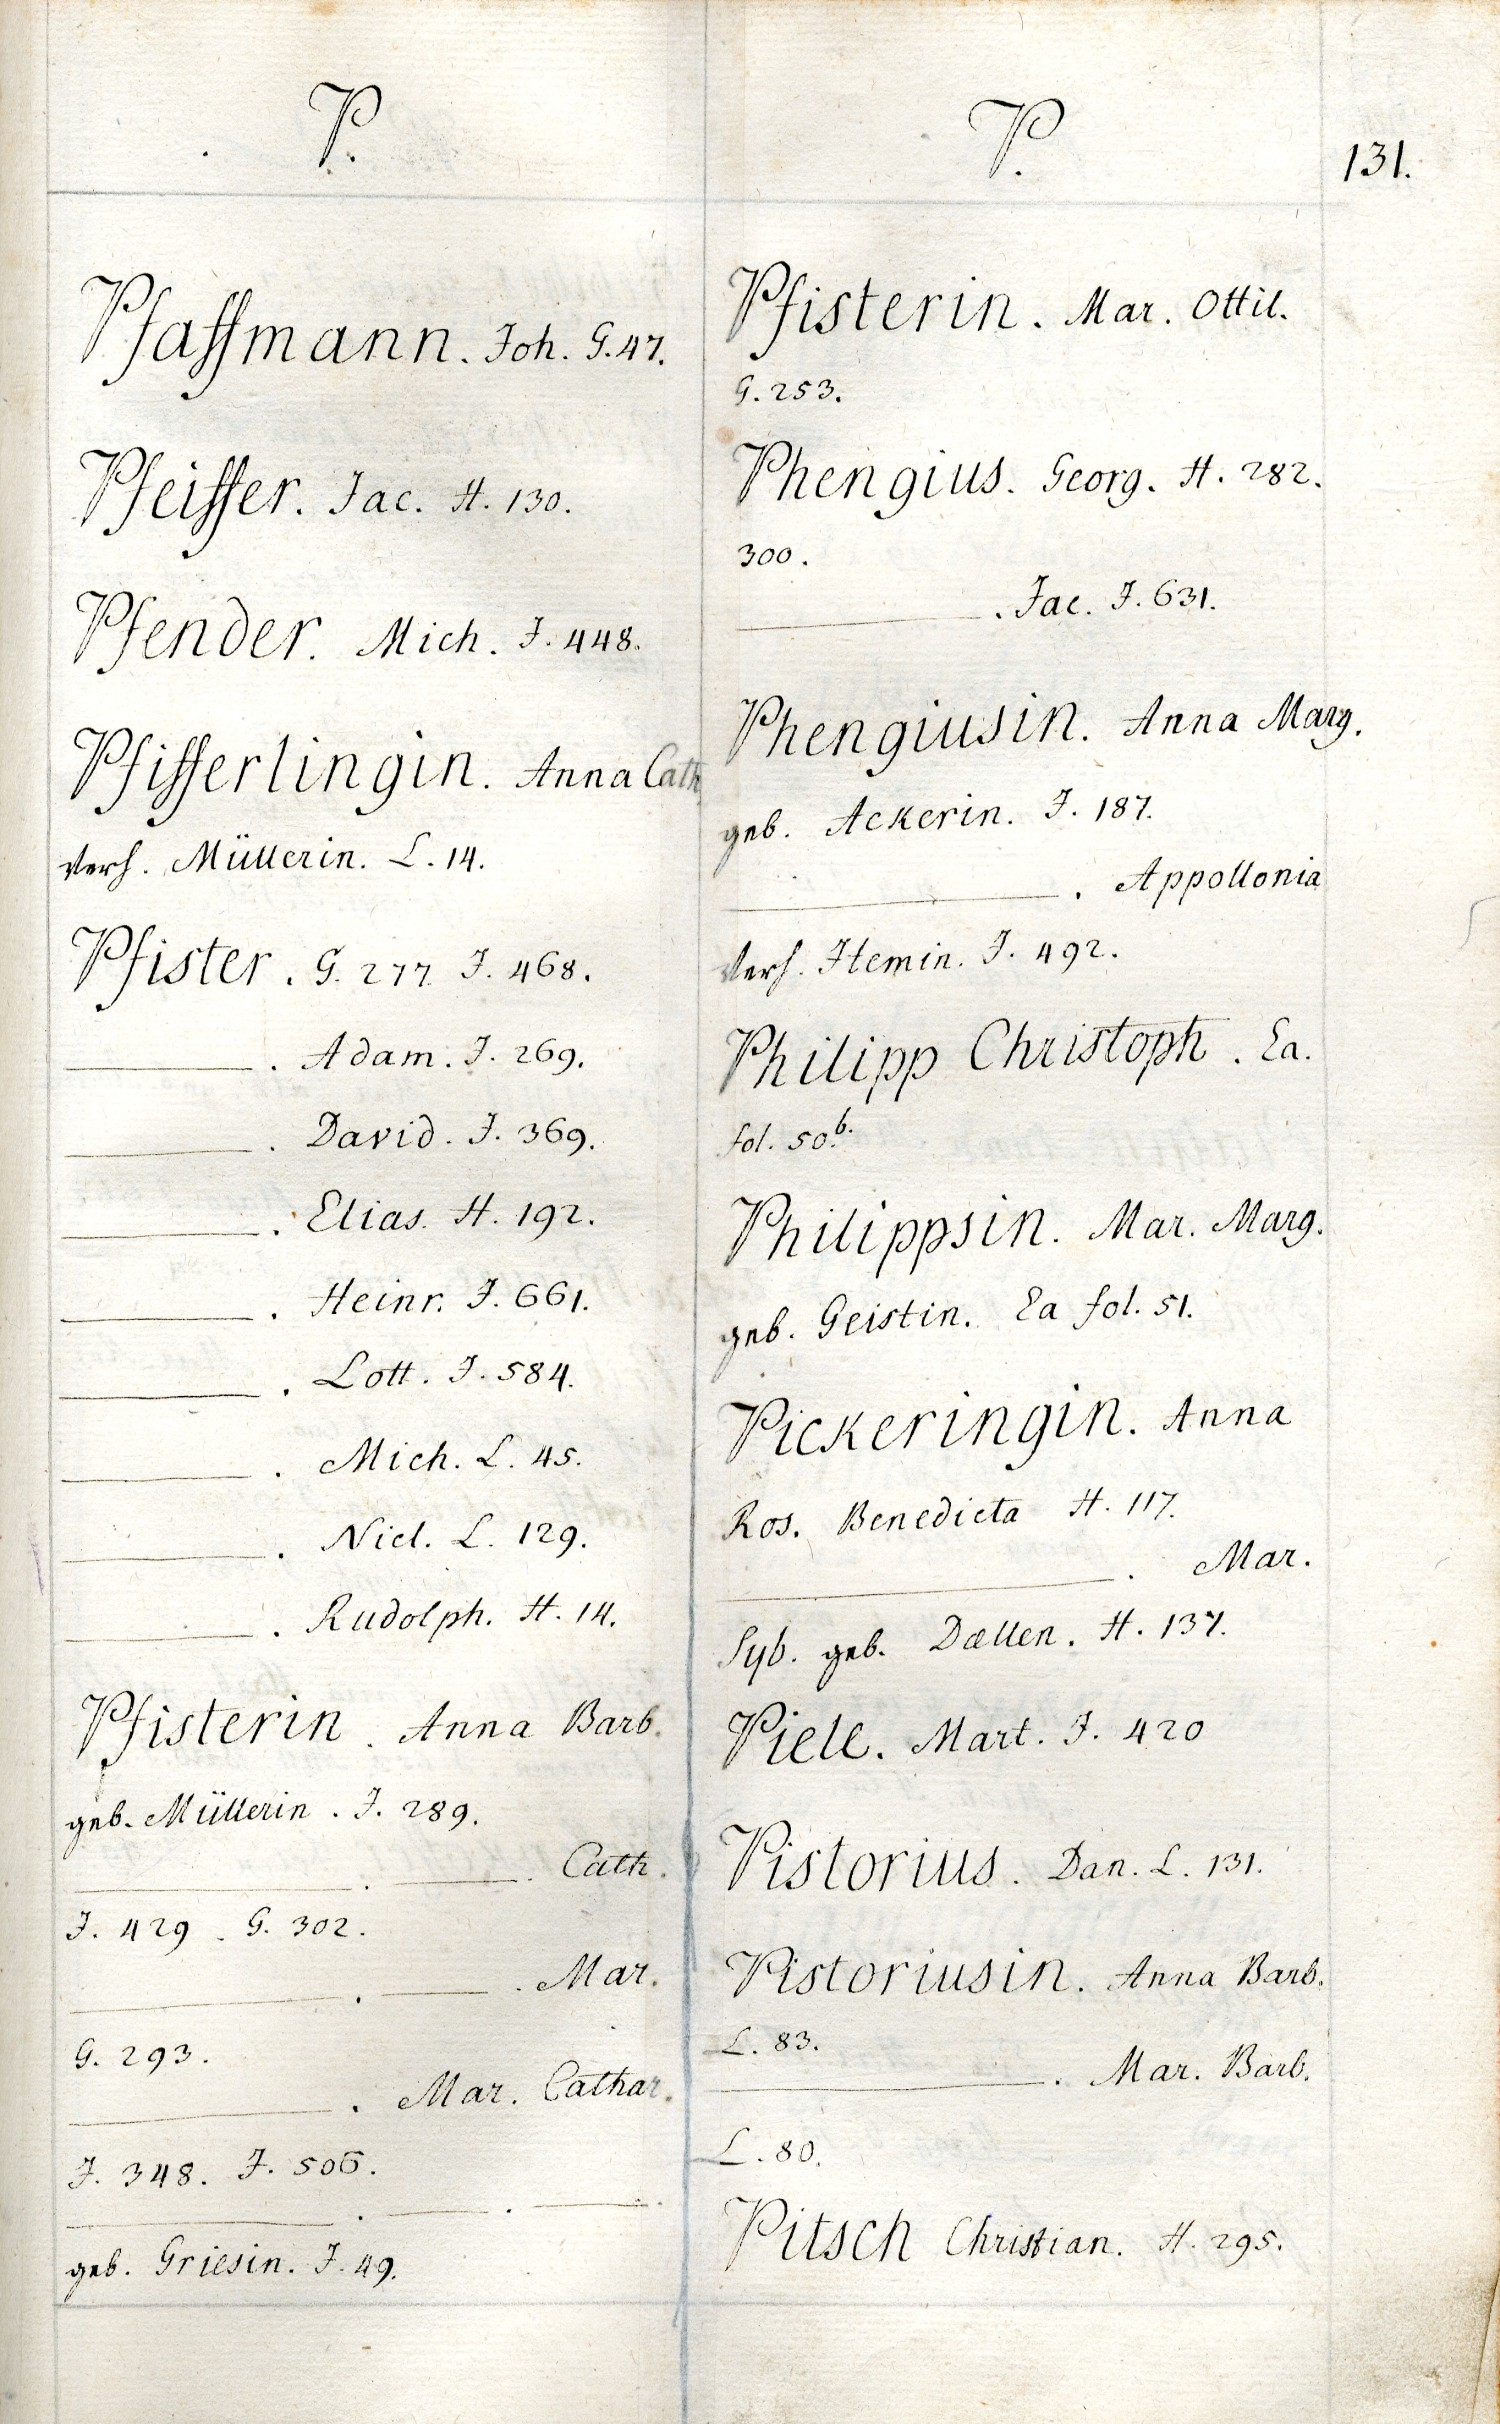 P.
Pfaffmann. Joh. G. 47.
Pfeiffer. Jac. H. 130.
Pfender. Mich. J. 448.
Pfifferlingin. Anna Cath
verh. Müllerin. L. 14.
Pfister. G. 277 J. 468.
———. Adam. J. 269.
———. David. J. 369.
———. Elias. H. 192.
———. Heinr. J. 661.
———. Lott. J. 584.
———. Mich. L. 45.
———. Nicl. L. 129.
———. Rudolph. H. 14.
Pfisterin. Anna Barb.
geb. Müllerin. J. 289.
———. ———. Cath.
J. 429. G. 302.
———. ———. Mar.
G. 293.
———. Mar. Cathar.
J. 348. J. 506.
———. ———. ———.
geb. Griesin. J. 49.
P.
131.
Pfisterin. Mar. Ottil.
G. 253.
Phengius. Georg. H. 282.
300.
———. Jac. J. 631.
Phengiusin. Anna Marg.
geb. Ackerin. J. 187.
———. Appollonia
verh. Hemin. J. 492.
Philipp Christoph. Ea.
fol. 50.b.
Philippsin. Mar. Marg.
geb. Geistin. Ea fol. 51.
Pickeringin. Anna
Ros. Benedicta H. 117.
———. Mar.
Syb. geb. Dællen. H. 137.
Piele. Mart. J. 420
Pistorius. Dan. L. 131.
Pistoriusin. Anna Barb.
L. 83.
———. Mar. Barb.
L. 80.
Pitsch Christian. H. 295.